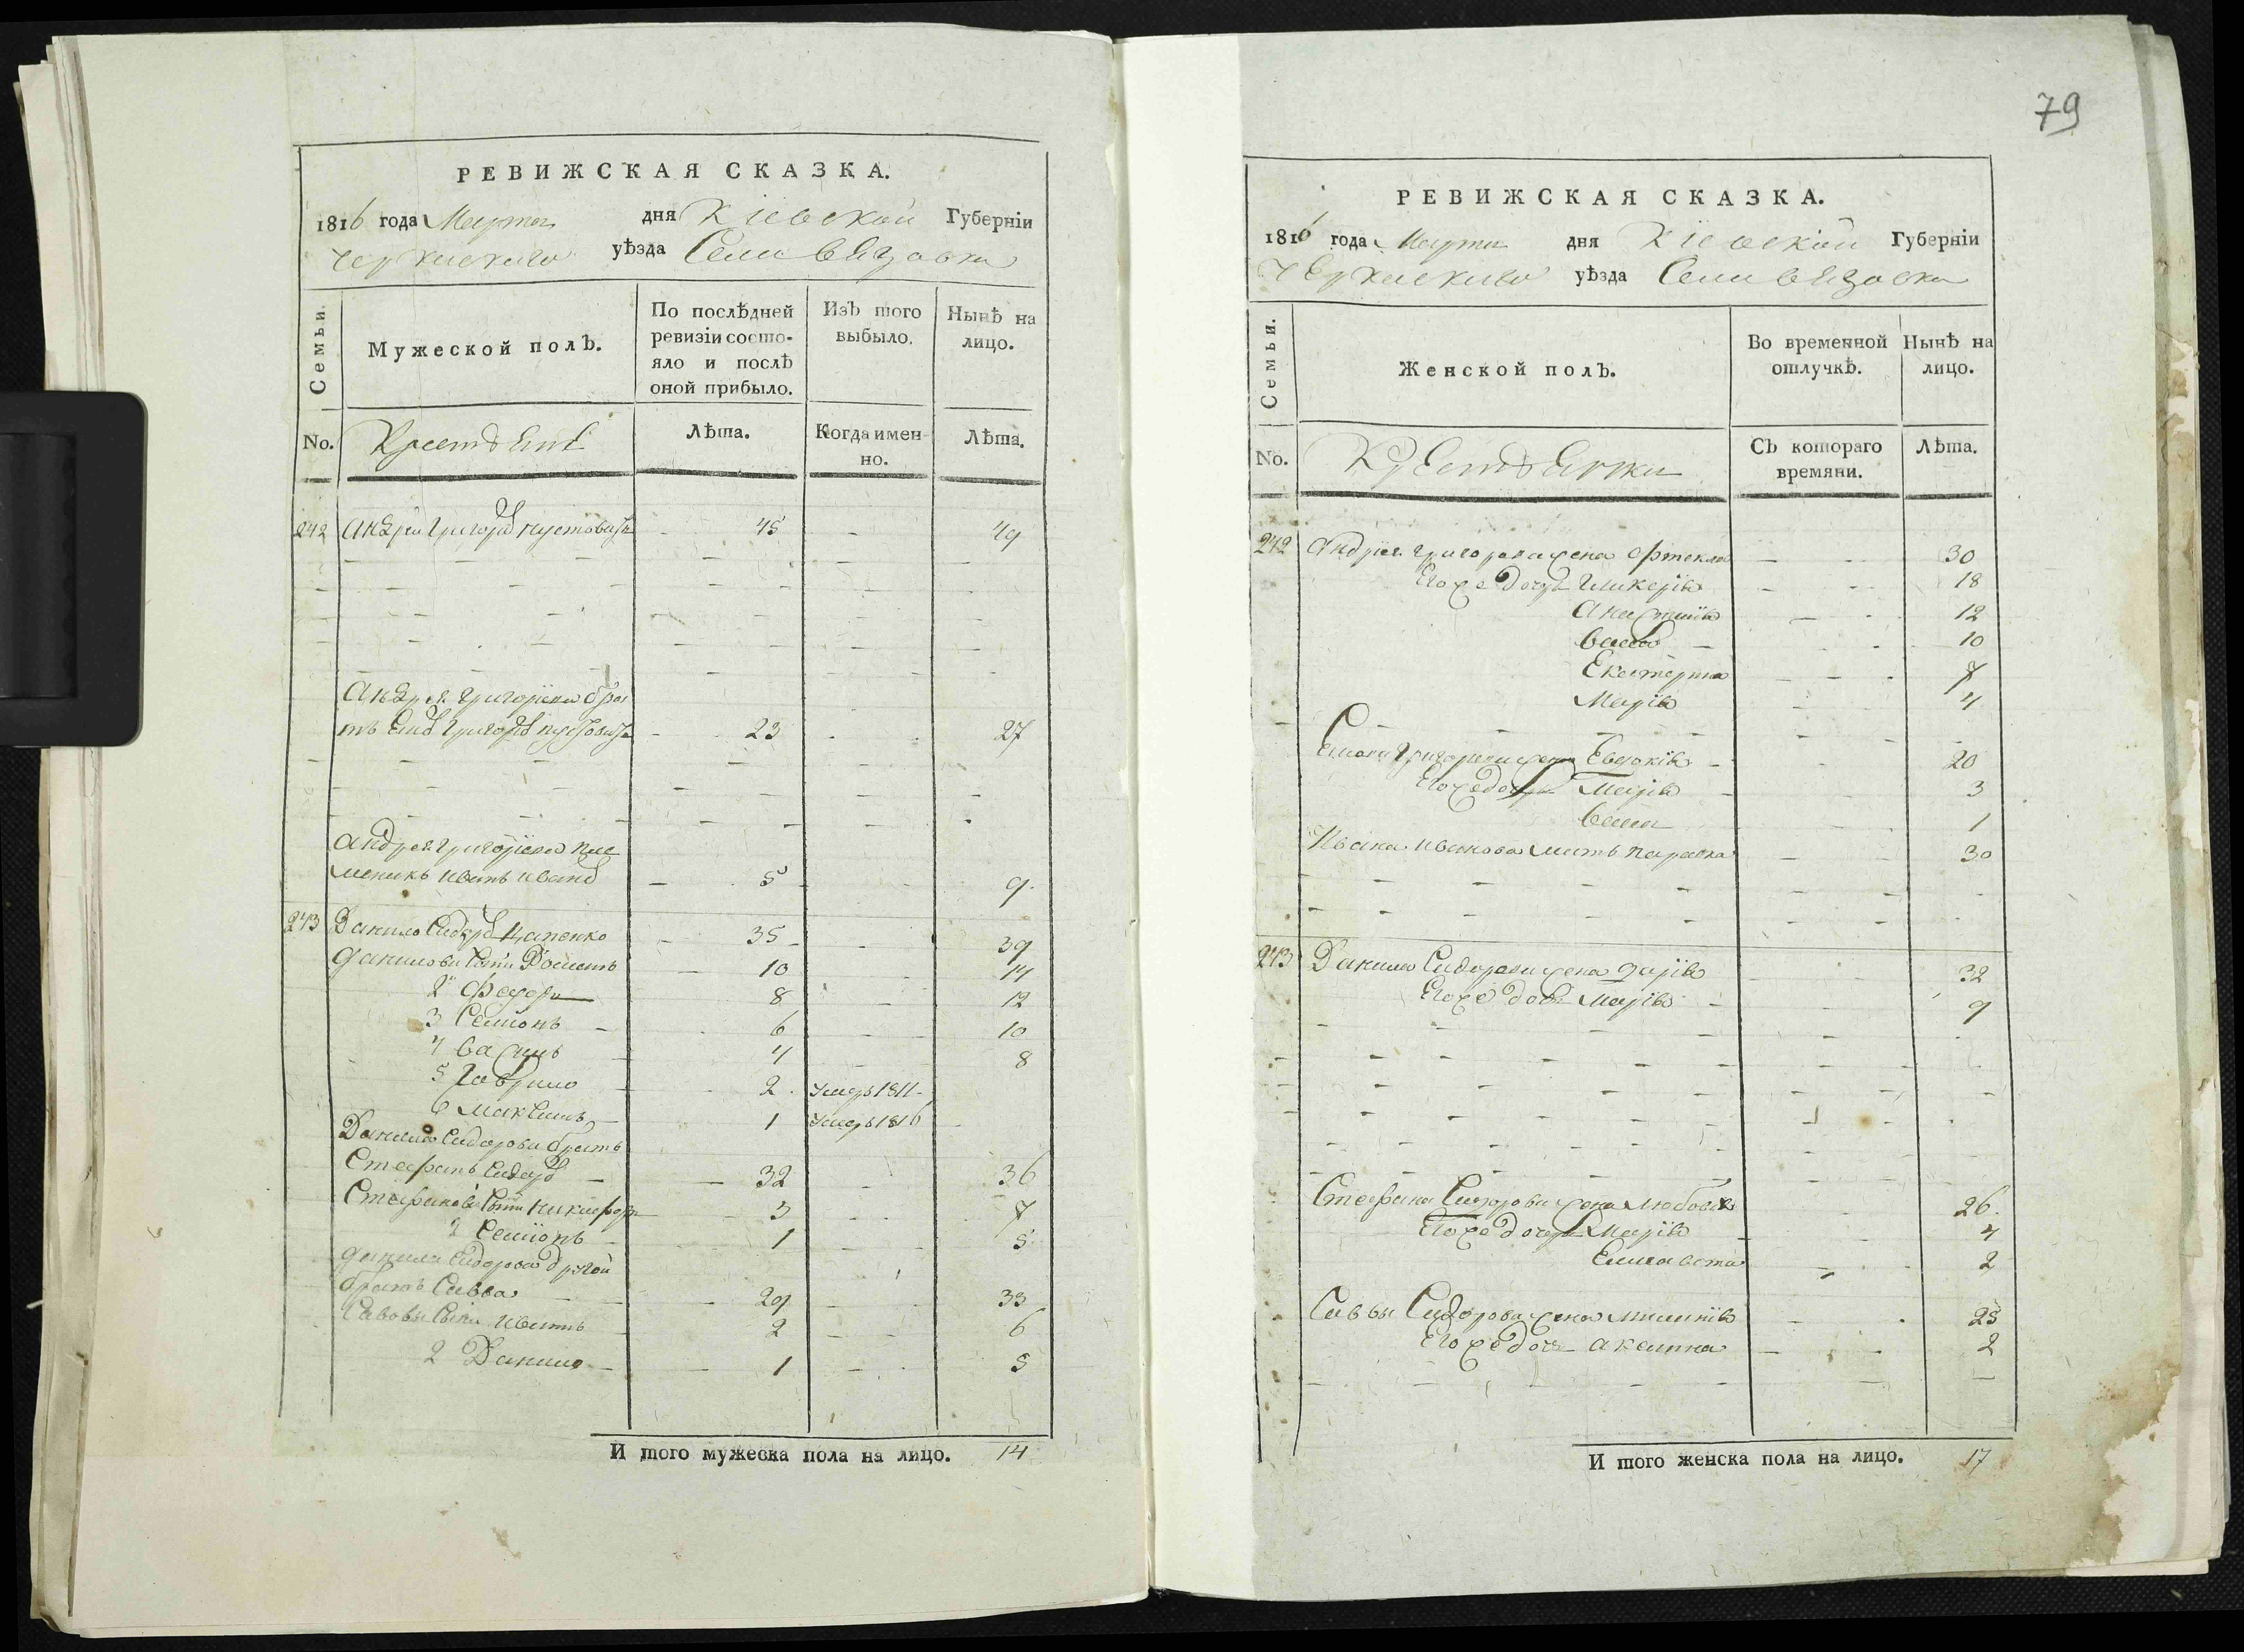 РЕВИЖСКАЯ СКАЗКА.
1816 года Марта дня Кіевской Губерніи
Черкаскаго уѣзда Села Вязовка
Семьи.
Мужеской полъ.
По послѣдней
ревизіи состо-
яло и послѣ
оной прибыло.
Изъ того
выбыло.
Нынѣ на
лицо.
No.
Лѣта.
Когда имен-
но.
Лѣта.
242 Андрей Григорьевъ 45 49
Андрея Григорьева бра
тъ Григорьевъ 23 27
Андрея Григорьева пле
меникъ Иванъ Ивановъ 5 9
243 Данило Сидоровъ Цапенко 35 39
Даниловы 10 14
2 Федоръ 8 12
3 Семіонъ 6 10
4 4 8
5 Гаврило 2 умеръ 1811
6 Максимъ 1 умеръ 1816
Данила Сидорова братъ
Стефанъ Сидоровъ 32 36
Стефановы Никифоръ 3 7
2 Семіонъ 1 5
Данила Сидорова другой
братъ Савва 29 33
Савовы сыны Иванъ 2 6
2 Данило 1 5
И того мужеска пола на лицо. 14
79
РЕВИЖСКАЯ СКАЗКА.
1816 года Марта дня Кіевской Губерніи
Черкаскаго уѣзда Села Вязовка
Семьи.
Женской полъ.
Во временной
отлучкѣ.
Нынѣ на
лицо.
No.
Съ котораго
времяни.
Лѣта.
242 Андрея Григорева жена 30
Егоже дочери Гликерія 18
Анастасія 12
10
Екатерина 7
Марія 4
Григорева жена Евдокія 20
Егоже дочери Марія 3
1
Ивана Иванова мать Параска 30
243 Данила Сидорова жена Дарія 32
Егоже дочь Марія 9
Стефана Сидорова жена Любовь 26
Егоже дочери Марія 4
Елисавета 2
Саввы Сидорова жена Миланія 25
Егоже дочь Акилина 2
И того женска пола на лицо. 17